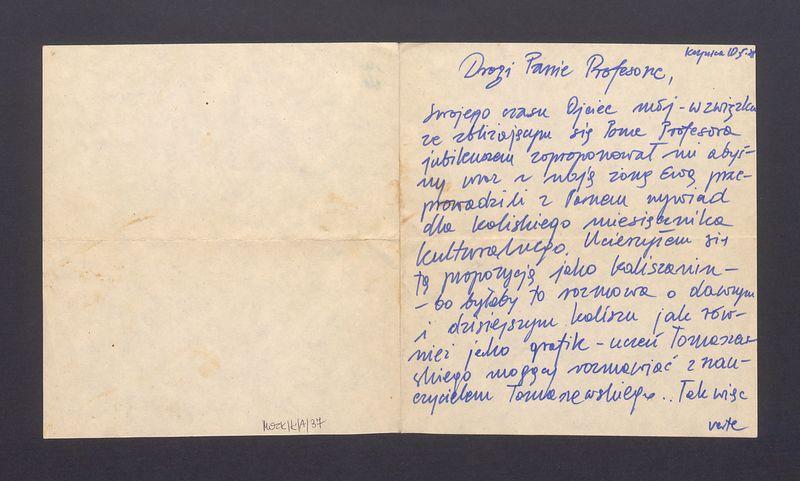 Drogi Panie Profesorze,
Swojego czasu Ojciec mój - w związku
ze zbliżającym się Pana Profesora
jubileuszem zaproponował mi abyś-
my wraz z moją żoną Ewą prze-
prowadzili z Panem wywiad
dla kaliskiego miesięcznika
kulturalnego. Ucieszyłem się
tą propozycją jako kaliszanin -
- bo byłaby to rozmowa o dawnym
i dzisiejszym Kaliszu jak rów-
nież jako grafik - uczeń Tomaszew-
skiego mogący rozmawiać z nau-
czycielem Tomaszewskiego... Tak więc
verte
MOZK/K/A/37